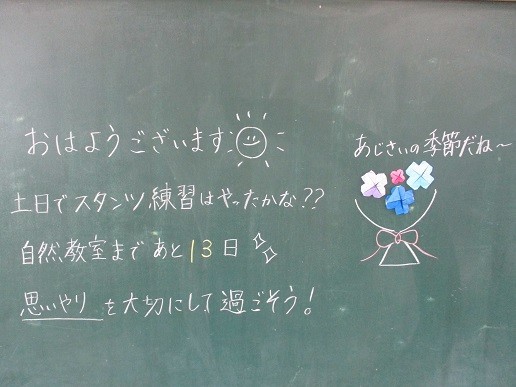 おはようございます
あじさいの季節だね～
土日でスタンツ練習はやったかな??
自然教室まであと13日
思いやりを大切にして過ごそう!